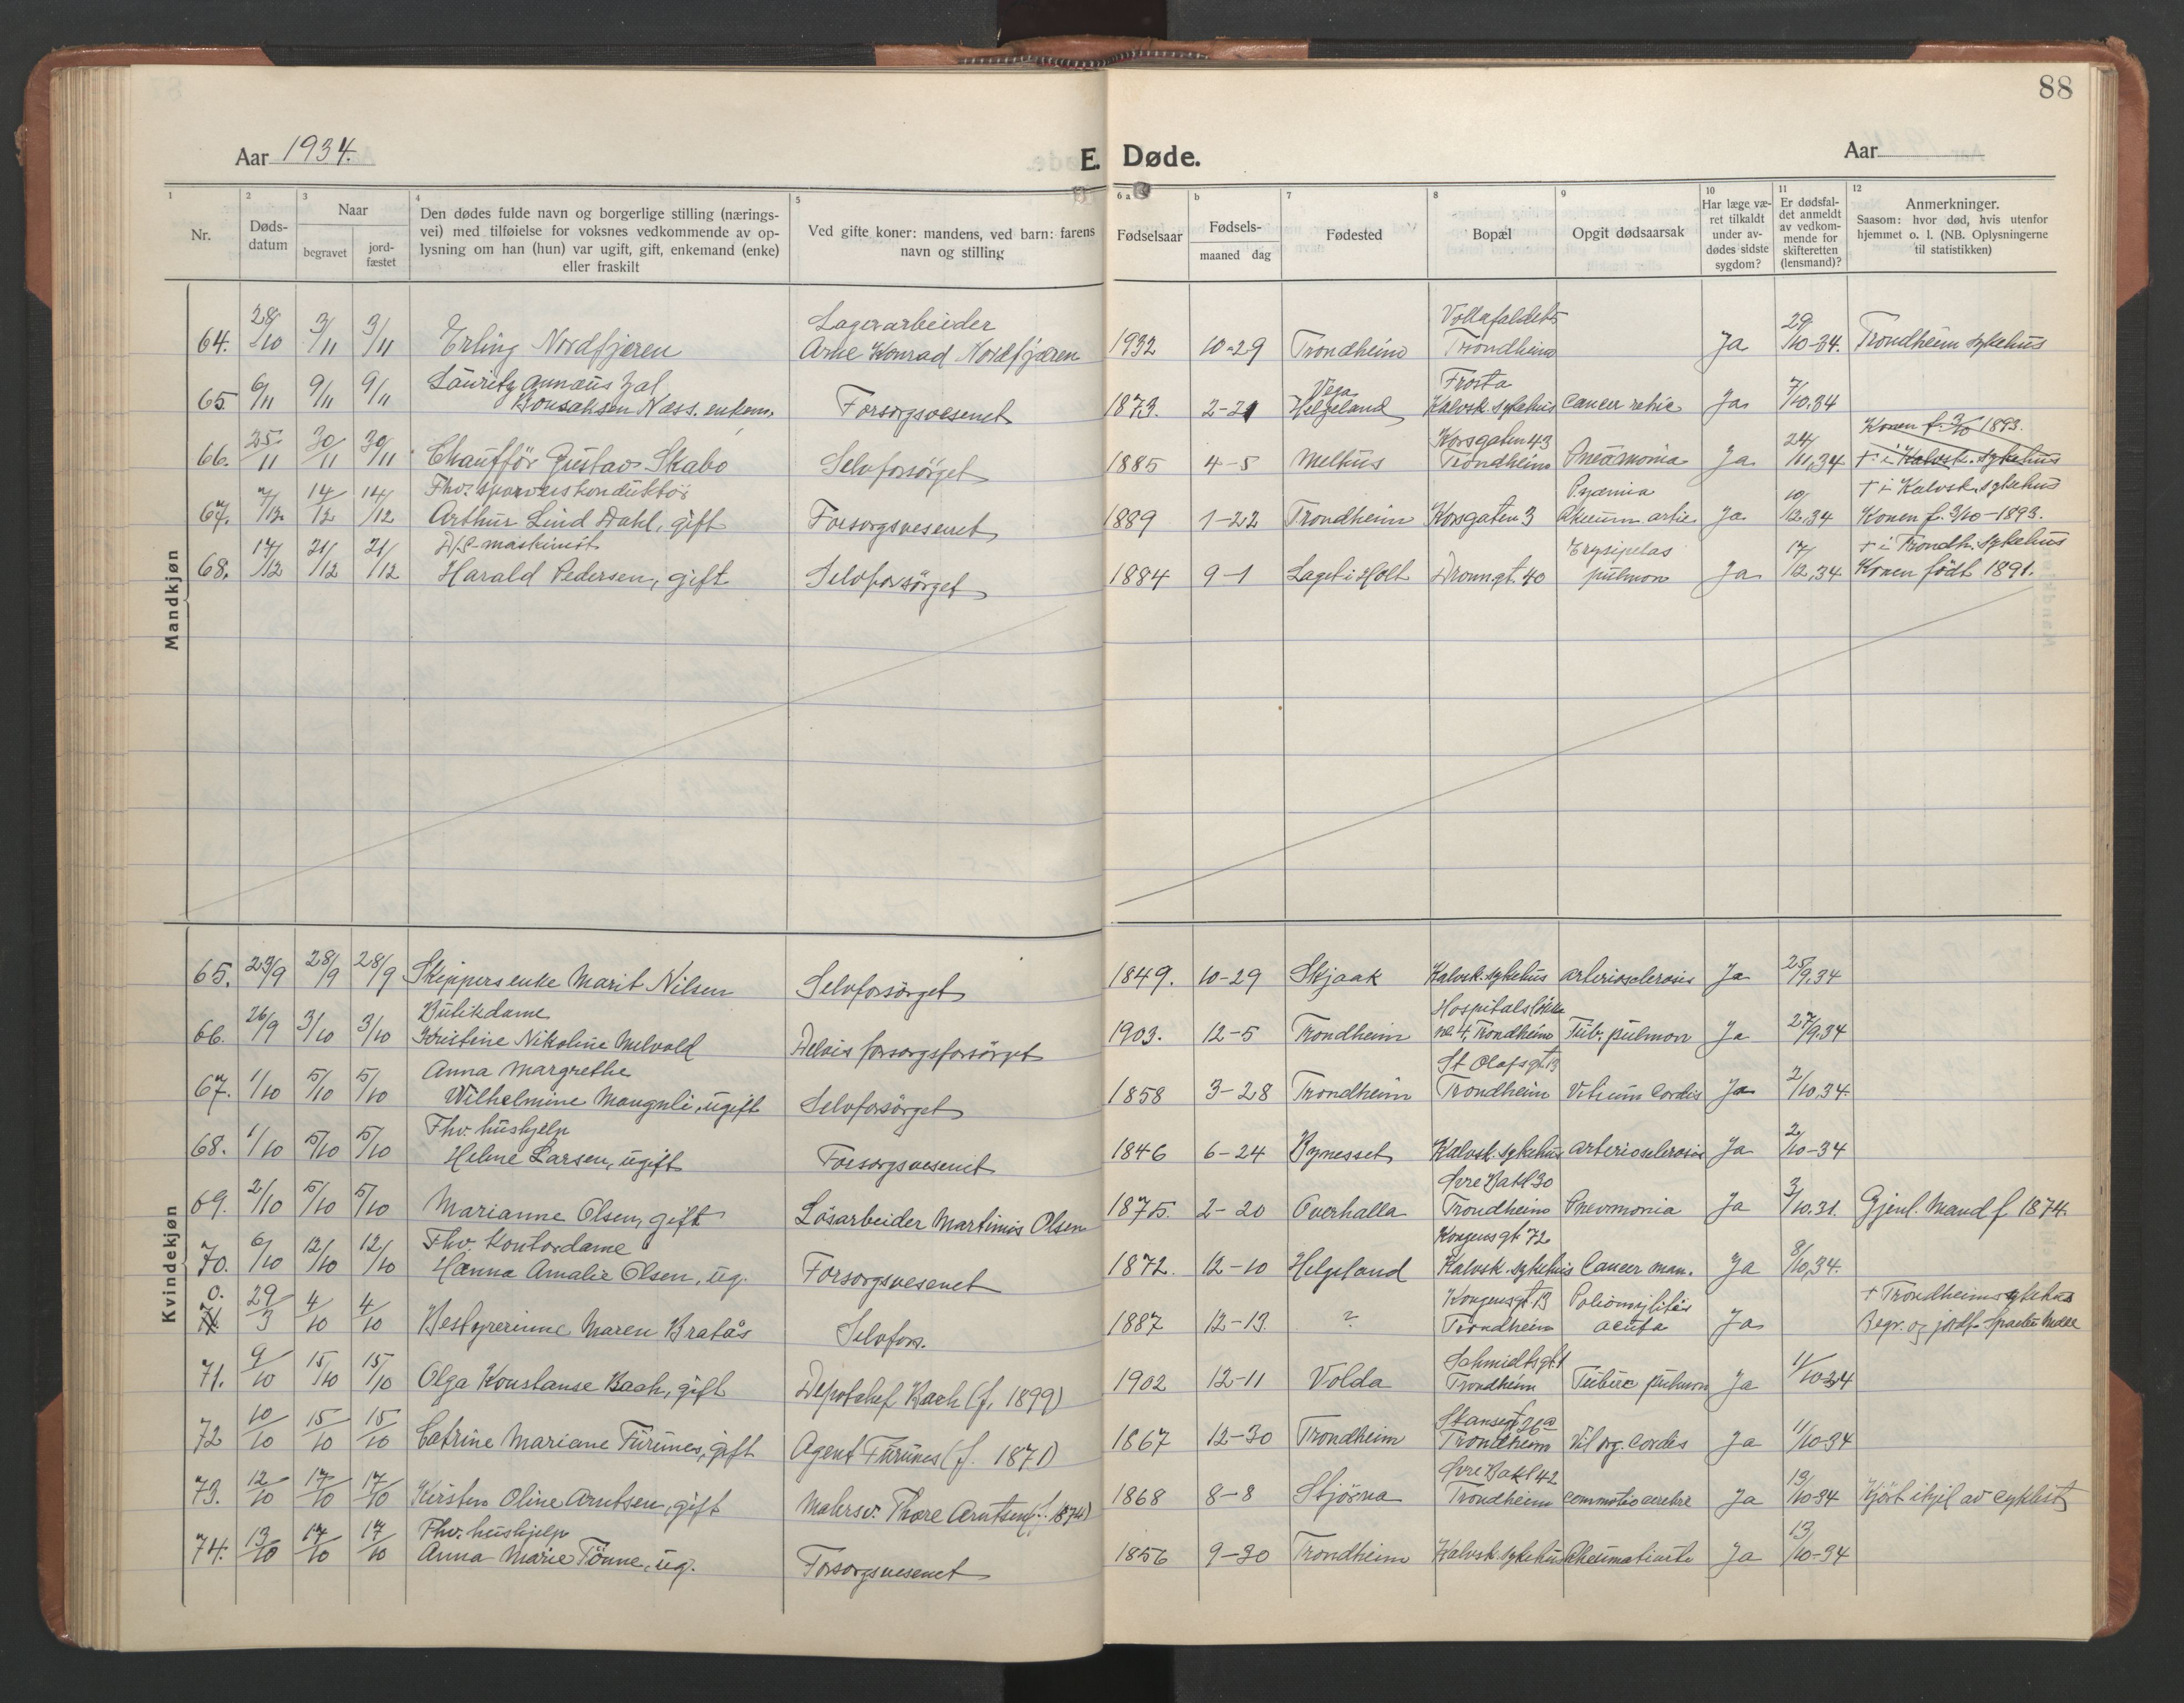 88
Aar 1934.
E. Døde.
Aar
1 2 3 4 5 6 a b 7 8 9 10 11 12
Nr.
Døds-
datum
Naar
begravet
jord-
fæstet
Den dødes fulde navn og borgerlige stilling (nærings-
vei) med tilføielse for voksnes vedkommende av op-
lysning om han (hun) var ugift, gift, enkemand (enke)
eller fraskilt
Ved gifte koner: mandens, ved barn: farens
navn og stilling
Fødselsaar
Fødsels-
maaned dag
Fødested
Bopæl
Opgit dødsaarsak
Har læge væ-
ret tilkaldt
under av-
dødes sidste
sygdom?
Er dødsfal-
det anmeldt
av vedkom-
mende for
skifteretten
(lensmand)?
Anmerkninger.
Saasom: hvor død, hvis utenfor
hjemmet o. l. (NB. Oplysningerne
til statistikken)
Mandkjøn
Lagerarbeider Vollafaldets
64. 28/10 3/11 3/11 Erling Nordfjæren Arne Konrad Nordfjæren 1932 10-29 Trondheim Trondheim Ja 29/10-34. Trondheim sykehus
Lauritz Vega Frosta
65. 6/11 9/11 9/11 Næss. enkem. Forsorgsvesenet 1873. 2-21 Helgeland Kalvsk. sykehus Cancer Ja 7/10.34
Korsgaten 43 Konen f. 3/10 1893.
66. 25/11 30/11 30/11 Chauffør Gustav Skabo Selvforsørget 1885 4-5 Melhus Trondheim Pneumonia Ja 24/11.34 † i Kalvsk. sykehus
Fhv. sporveiskonduktør Pyæmia † i Kalvsk. sykehus
67. 7/12 14/12 14/12 Arthur Lind Dahl, gift Forsorgsvesenet 1889 1-22 Trondheim Korsgaten 3 Ja 10/12.34 Konen f. 3/10-1893.
D/S-maskinist Erysipelas † i Trondh. sykehus
68. 17/12 21/12 21/12 Harald Pedersen, gift Selvforsørget 1884 9-1 Laget i Holt Dronngt. 40 pulmon Ja 17/12.34 Konen født 1891.
Kvindekjøn
65. 23/9 28/9 28/9 Skippersenke Marit Nilsen Selvforsørget 1849. 10-29 Skjaak Kalvsk. sykehus Arteriosclerosis Ja 25/9.34
Butikdame Hospitalsløkka
66. 26/9 3/10 3/10 Kristine Nikoline Melvold Delvis forsorgsforsørget 1903. 12-5 Trondheim no 4, Trondheim Tub. pulmon Ja 27/9.34
Anna Margrethe St Olafsgt. 13
67. 1/10 5/10 5/10 Wilhelmine Manguli, ugift Selvforsørget 1858 3-28 Trondheim Trondheim Vitium Cordis Ja 2/10.34.
Fhv. hushjelp
68. 1/10 5/10 5/10 Helene Larsen, ugift Forsorgsvesenet 1846 6-24 Bynesset Kalvsk. sykehus Arteriosclerosis Ja 2/10-34
Øvre Bakl. 30
69. 2/10 5/10 5/10 Marianne Olsen, gift Løsarbeider Martinus Olsen 1875. 2-20 Overhalla Trondheim Pnevmonia Ja 3/10.31. Gjenl. Mand f 1874.
Fhv. Kontordame Kongensgt 72
70. 6/10 12/10 12/10 Hanna Amalie Olsen, ug. Forsorgsvesenet 1872. 12-10 Helgeland Kalvsk. sykehus Cancer mam. Ja 8/10.34.
0. Kongensgt 13 Poliomylitis † Trondheim sykehus
71 29/3 4/10 4/10 Bestyrerinne Maren Bratås Selvfors. 1887 12-13. ? Trondheim acuta Ja Begr. og jordf.
Schmidtsgt. 1
71. 9/10 15/10 15/10 Olga Konstanse Bach, gift Depotchef Bach (f. 1899) 1902 12-11 Volda Trondheim Tuberc pulmon Ja 11/10-34
72 10/10 15/10 15/10 Catrine Mariane Furunes, gift Agent Furunes (f. 1871) 1867 12-30 Trondheim Trondheim Vit. org. Cordis Ja 11/10-34
Øvre Bakl 42
73. 12/10 17/10 17/10 Kirsten Oline Arntsen, gift Malersv. Thore Arntsen (f. 1874) 1868 8-8 Stjørna Trondheim Commotio cerebri Ja 13/10-34 Kjørt ihjel av cyklist
Fhv. hushjelp
74. 13/10 17/10 17/10 Anna Marie Tønne, ug. Forsorgsvesenet 1856 9-30 Trondheim Kalvsk. sykehus Ja 13/10-34